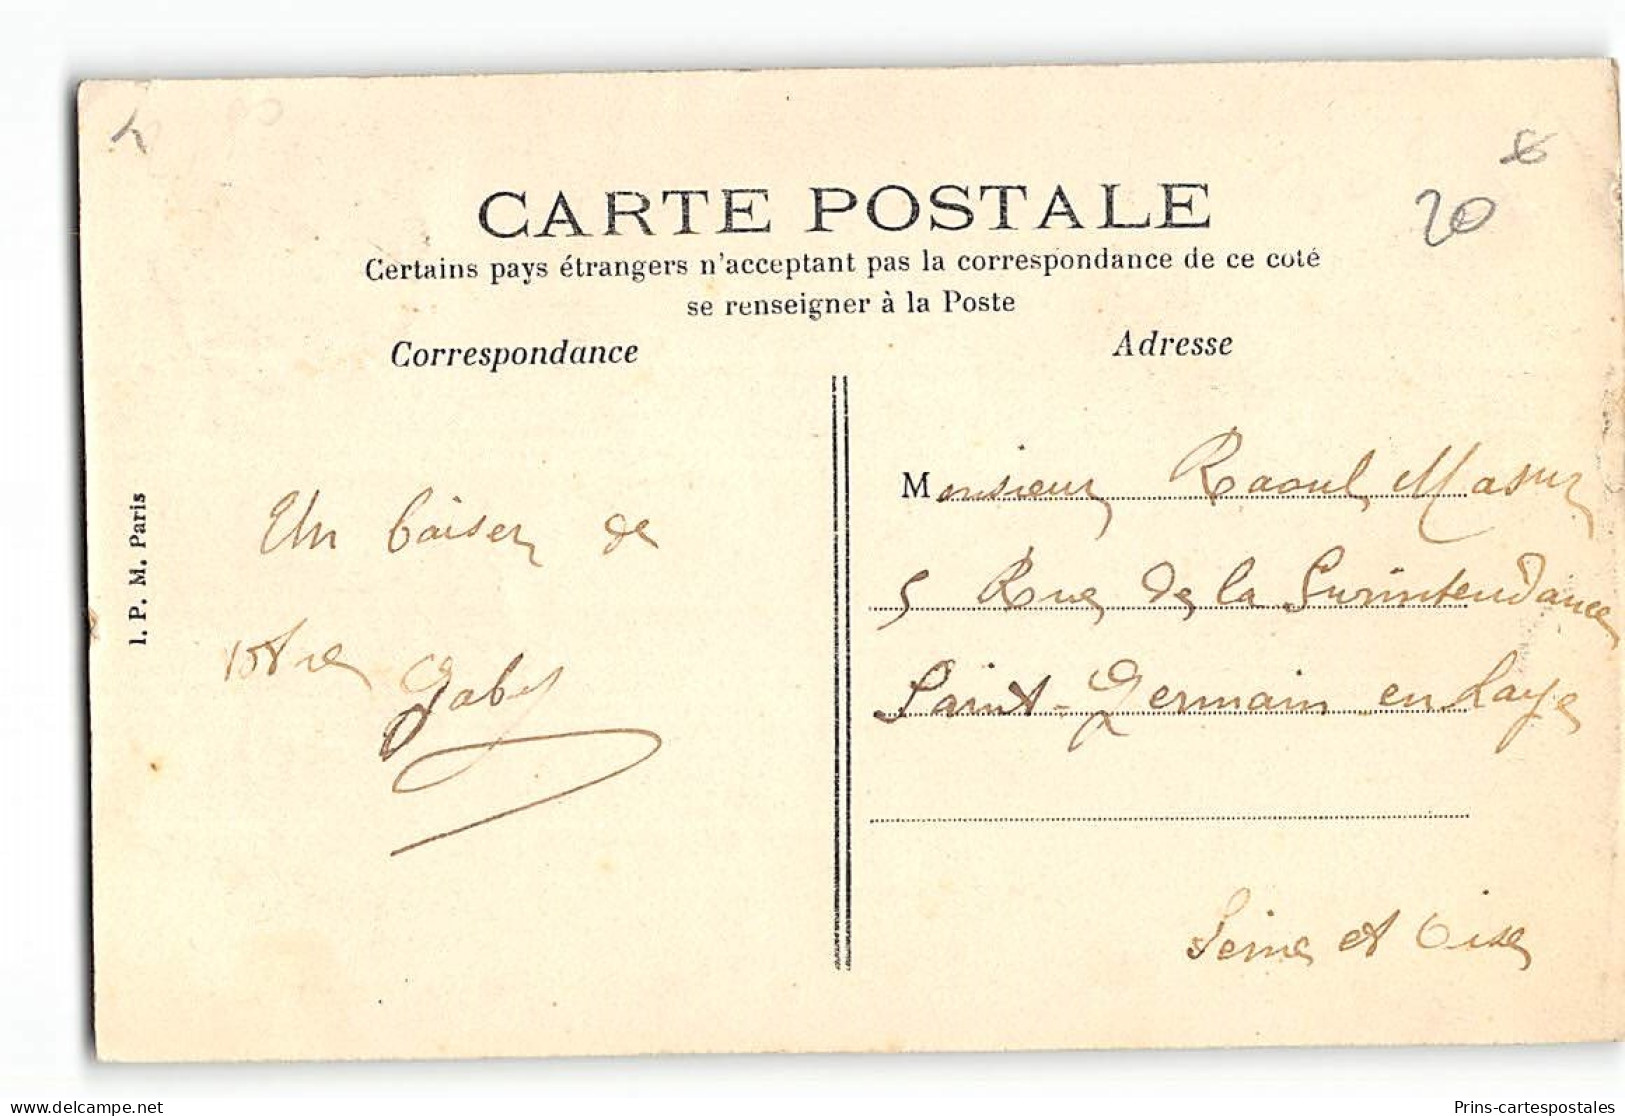 CARTE POSTALE
20
Certains pays étrangers n'acceptant pas la correspondance de ce coté
se renseigner à la Poste
Correspondance
Adresse
I. P. M. Paris
Un baiser de
votre Gaby
Monsieur Raoul Masur
5 Rue de la Surintendance
Saint-Germain en Laye
Seine et Oise
www.delcampe.net
Prins-cartespostales